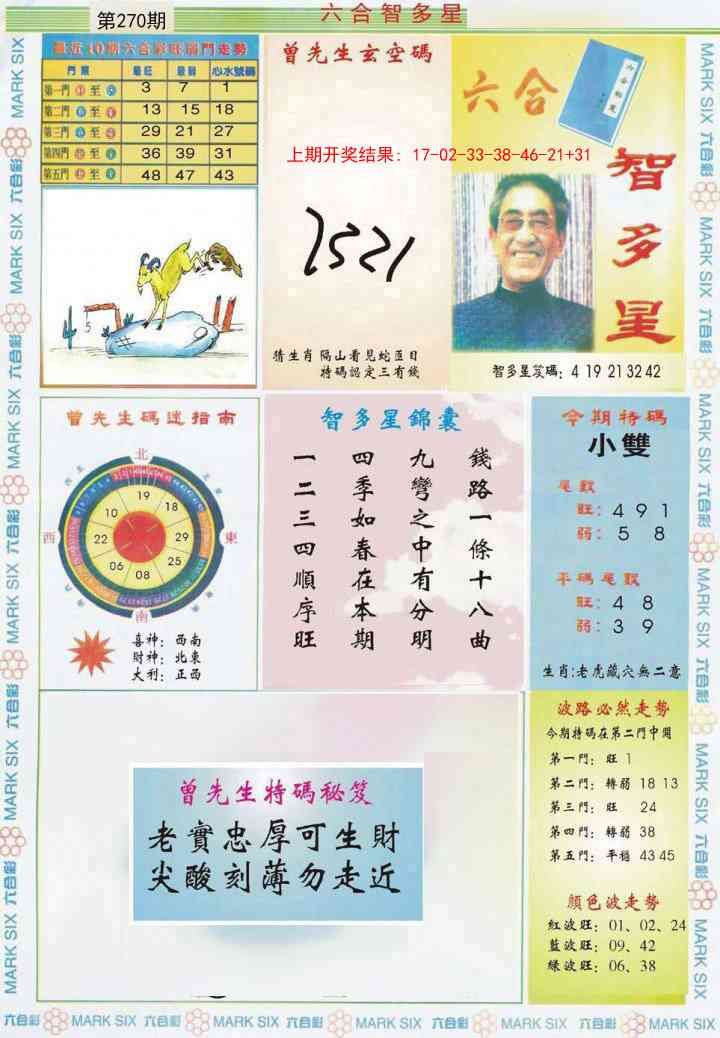 第270期
六合智多星
最近10期六合彩旺弱門走勢
門類 最旺 最弱 心水號碼
第一門 至 3 7 1
第二門 至 13 15 18
第三門 至 29 21 27
第四門 至 36 39 31
第五門 至 48 47 43
5
曾先生玄空碼
上期开奖结果：17-02-33-38-46-21+31
猜生肖 隔山看見蛇匝日
特碼認定三有錢
六合
智多星
智多星笈碼：4 19 21 32 42
曾先生碼迷指南
北
西
東
南
19
18
29
25
08
06
22
10
喜神：西南
財神：北東
大利：正西
智多星錦囊
錢路一條十八曲
九彎之中有分明
四季如春在本期
一二三四順序旺
今期特碼
小雙
尾數
旺：4 9 1
弱：5 8
平碼尾數
旺：4 8
弱：3 9
生肖:老虎藏穴無二意
曾先生特碼秘笈
老實忠厚可生財
尖酸刻薄勿走近
波路必然走勢
今期特碼在第二門中開
第一門：旺 1
第二門：轉弱 18 13
第三門：旺 24
第四門：轉弱 38
第五門：平穩 43 45
顏色波走勢
紅波旺：01、02、24
藍波旺：09、42
綠波旺：06、38
MARK SIX 六合彩 MARK SIX 六合彩 MARK SIX 六合彩 MARK SIX 六合彩 MARK SIX 六合彩
MARK SIX 六合彩 MARK SIX 六合彩 MARK SIX 六合彩 MARK SIX 六合彩 MARK SIX 六合彩 MARK SIX
六合彩 MARK SIX 六合彩 MARK SIX 六合彩 MARK SIX 六合彩 MARK SIX 六合彩 MARK SIX